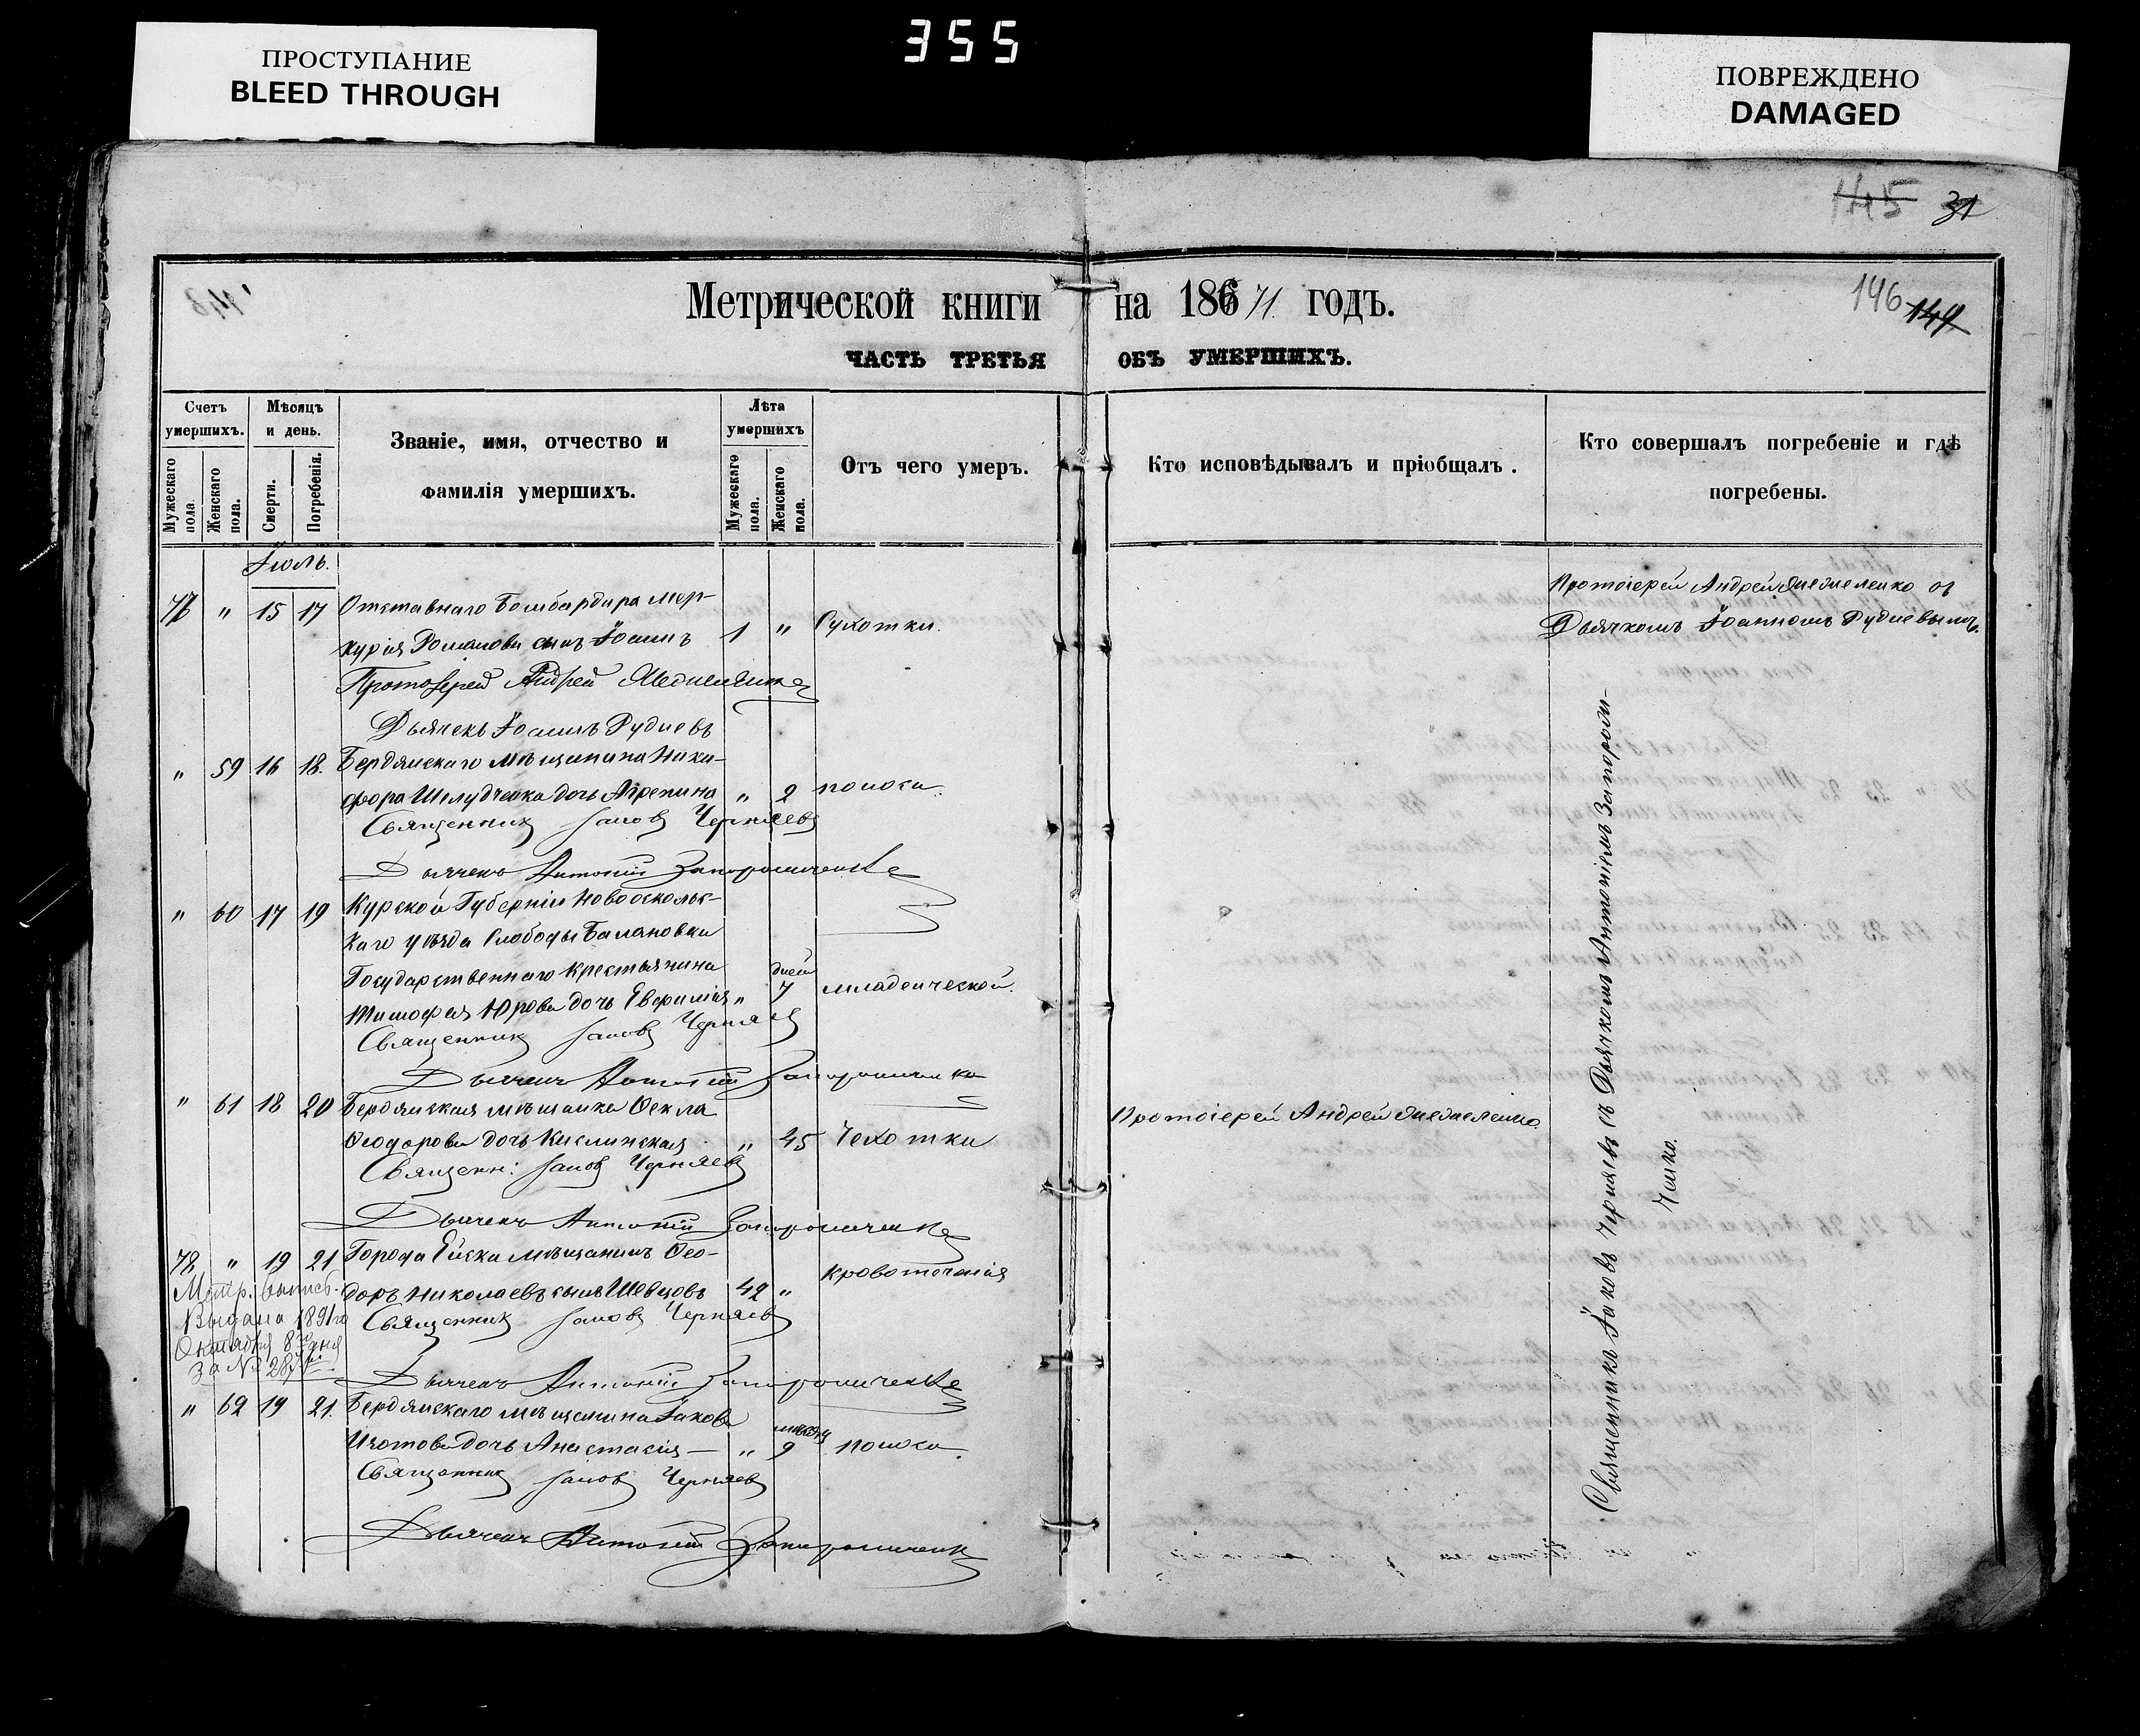 355
ПРОСТУПАНИЕ
BLEED THROUGH
ПОВРЕЖДЕНО
DAMAGED
145 31
146 149
Метрической книги на 186 71 годъ.
ЧАСТЬ ТРЕТЬЯ ОБЪ УМЕРШИХЪ.
Счетъ умершихъ.
Мужескаго пола.
Женскаго пола.
Мѣсяцъ и день.
Смерти.
Погребенія.
Званіе, имя, отчество и
фамилія умершихъ.
Лѣта умершихъ
Мужескаго пола.
Женскаго пола.
Отъ чего умеръ.
Кто исповѣдывалъ и пріобщалъ.
Кто совершалъ погребеніе и гдѣ
погребены.
Іюль.
77 " 15 17 Отставнаго Бомбардира Мер-
курія Романова сынъ Іоаннъ 1 " Сухотки.
Протоіерей Андрей
Дьячекъ Іоаннъ Рудневъ
Протоіерей Андрей съ
Дьячкомъ Іоанномъ Рудневымъ.
" 59 16 18. Бердянскаго мѣщанина Ники-
фора Шелудченка дочь Агрепина " 2 поноса.
Священникъ Іаковъ Черняевъ
Дьячекъ Антоній Запорожченко
" 60 17 19 Курской Губерніи Новооскольс-
каго уѣзда Слободы Балановки
Государственнаго крестьянина
Тимофея Юрова дочь Евфимія " дней 7 младенческой.
Священникъ Іаковъ Черняевъ
Дьячекъ Антоній Запорожченко
" 61 18 20 Бердянская мѣщанка Ѳекла
Ѳеодорова дочь Кислинская " 45 Чехотки
Священн: Іаковъ Черняевъ
Дьячекъ Антоній Запорожченко
Протоіерей Андрей
78 " 19 21 Города Ейска мѣщанинъ Ѳео-
доръ Николаевъ сынъ Шевцовъ 42 " кровотеченія
Священникъ Іаковъ Черняевъ
Дьячекъ Антоній Запорожченко
Метр. выпись
Выдана 1891 го
Октября 8 го дня
за № 287 м.
" 62 19 21. Бердянскаго мѣщанина Іакова
Изотова дочь Анастасія — " мѣсяц 9 поноса
Священникъ Іаковъ Черняевъ
Дьячекъ Антоній Запорожченко
Священникъ Іаковъ Черняевъ съ Дьячкомъ Антоніемъ Запорож-
ченко.